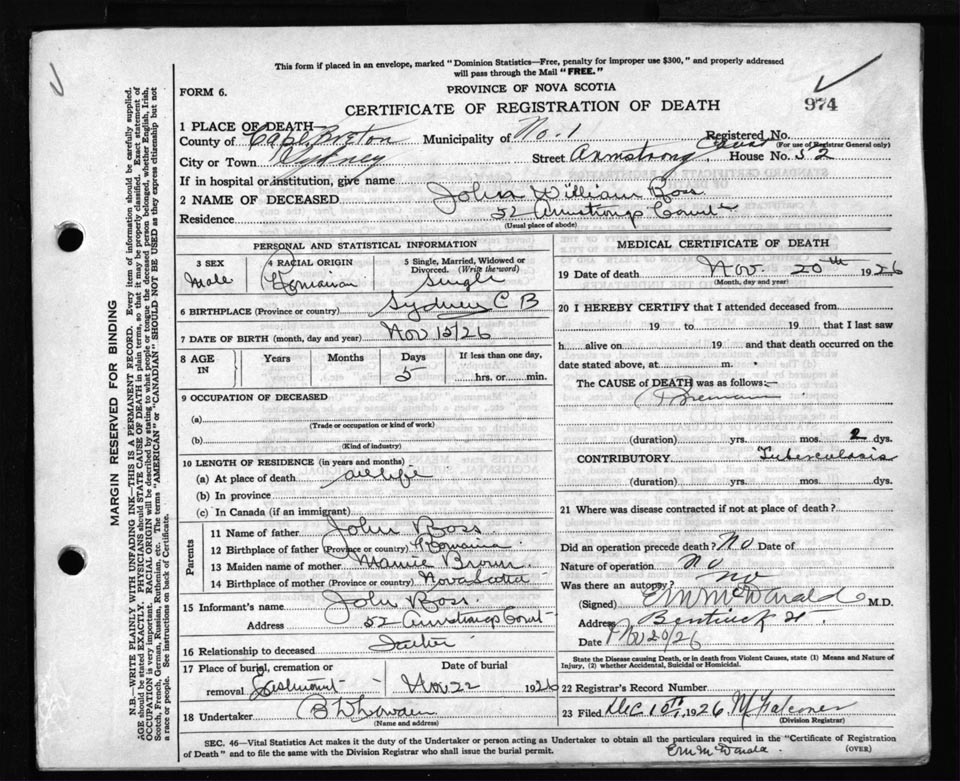 This form if placed in an envelope, marked "Dominion Statistics—Free, penalty for improper use $300," and properly addressed
will pass through the Mail "FREE."
FORM 6.
PROVINCE OF NOVA SCOTIA
CERTIFICATE OF REGISTRATION OF DEATH
974
1 PLACE OF DEATH—
County of Cape Breton Municipality of No. 1 Registered No.
(For use of Registrar General only)
City or Town Sydney Street Armstrong Court House No. 52
If in hospital or institution, give name
2 NAME OF DECEASED John William Boss
Residence 52 Armstrong Court
(Usual place of abode)
PERSONAL AND STATISTICAL INFORMATION
3 SEX Male
4 RACIAL ORIGIN Romanian
5 Single, Married, Widowed or Divorced. (Write the word) Single
6 BIRTHPLACE (Province or country) Sydney C B
7 DATE OF BIRTH (month, day and year) Nov 15/26
8 AGE IN Years Months Days 5 If less than one day, hrs. or min.
9 OCCUPATION OF DECEASED
(a)
(Trade or occupation or kind of work)
(b)
(Kind of industry)
10 LENGTH OF RESIDENCE (in years and months)
(a) At place of death all life
(b) In province
(c) In Canada (if an immigrant)
Parents
11 Name of father John Boss
12 Birthplace of father (Province or country) Romania
13 Maiden name of mother Mamie Brown
14 Birthplace of mother (Province or country) Nova Scotia
15 Informant's name John Boss
Address 52 Armstrong Court
16 Relationship to deceased Father
17 Place of burial, cremation or removal Eastmount
Date of burial Nov 22 1926
18 Undertaker
(Name and address)
MEDICAL CERTIFICATE OF DEATH
19 Date of death Nov. 20th 1926
(Month, day and year)
20 I HEREBY CERTIFY that I attended deceased from
19 to 19 that I last saw
h alive on 19 and that death occurred on the
date stated above, at m.
The CAUSE of DEATH was as follows:—
(duration) yrs. mos. 2 dys.
CONTRIBUTORY Tuberculosis
(duration) yrs. mos. dys.
21 Where was disease contracted if not at place of death?
Did an operation precede death? No Date of
Nature of operation No
Was there an autopsy? No
(Signed) E M McDonald M.D.
Address Bentinck St.
Date Nov 20/26
State the Disease causing Death, or in death from Violent Causes, state (1) Means and Nature of
Injury, (2) whether Accidental, Suicidal or Homicidal.
22 Registrar's Record Number
23 Filed Dec 15th, 1926 M Falconer
(Division Registrar)
SEC. 46—Vital Statistics Act makes it the duty of the Undertaker or person acting as Undertaker to obtain all the particulars required in the "Certificate of Registration
of Death" and to file the same with the Division Registrar who shall issue the burial permit.
(OVER)
E M McDonald
MARGIN RESERVED FOR BINDING
N.B.—WRITE PLAINLY WITH UNFADING INK—THIS IS A PERMANENT RECORD. Every item of information should be carefully supplied.
AGE should be stated EXACTLY. PHYSICIANS should STATE CAUSE OF DEATH in plain terms, so that it may be properly classified. Exact statement of
OCCUPATION is very important. RACIAL ORIGIN will be described by stating to what people or tongue the deceased person belonged, whether English, Irish,
Scotch, French, German, Russian, Ruthenian, etc. The terms "AMERICAN" or "CANADIAN" SHOULD NOT BE USED as they express citizenship but not
a race or people. See instructions on back of Certificate.